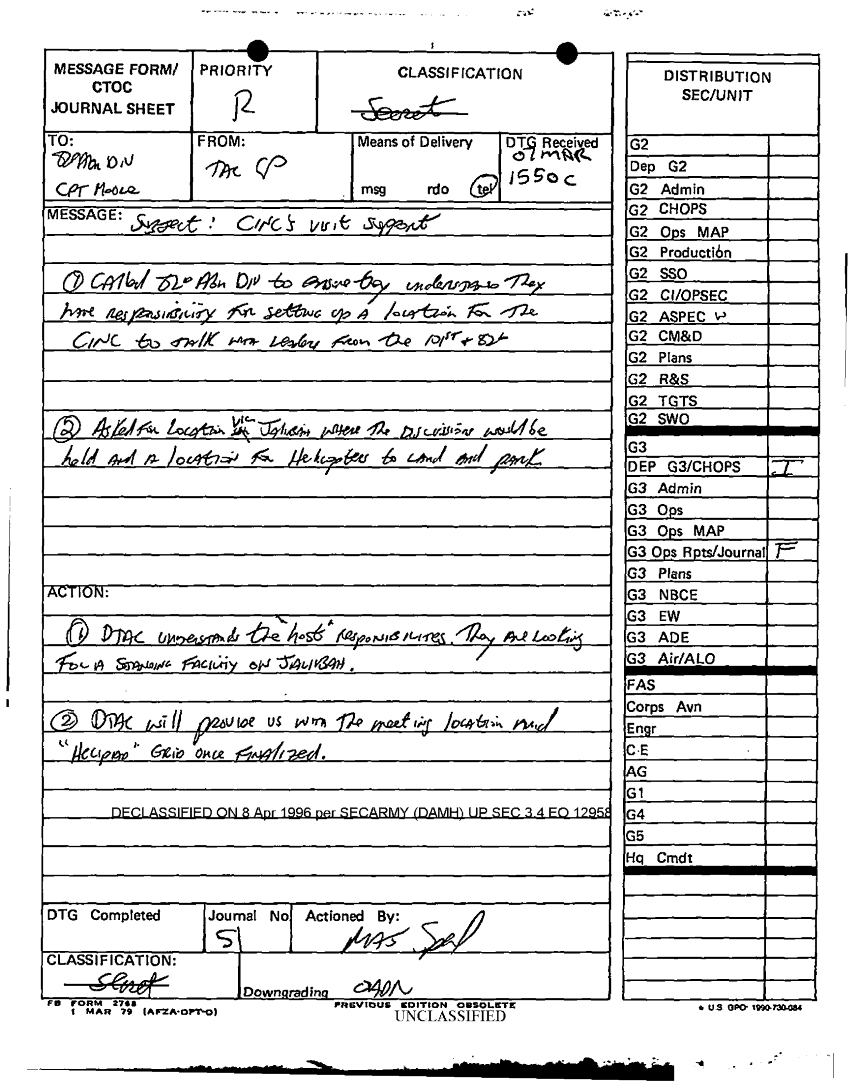 MESSAGE FORM/
CTOC
JOURNAL SHEET
PRIORITY
R
CLASSIFICATION
Secret
TO:
82d Abn DIV
CPT Moore
FROM:
TAC CP
Means of Delivery
msg rdo tel
DTG Received
07 MAR
1550 C
MESSAGE: Subject: CINC's visit support
① Called 82d Abn DIV to ensure they understand They
have responsibility for setting up a location for the
CINC to talk with leaders from the 101st + 82d
② Asked for location vic Jalibah where the discussions would be
held and a location for Helicopters to land and park
ACTION:
① DTAC understands the "host" responsibilities. They are looking
for a standing facility on JALIBAH.
② DTAC will provide us with the meeting location and
"Helipad" Grid once finalized.
DECLASSIFIED ON 8 Apr 1996 per SECARMY (DAMH) UP SEC 3.4 EO 12958
DTG Completed
Journal No
51
Actioned By:
MAJ
CLASSIFICATION:
Secret
Downgrading OADR
FB FORM 2768
1 MAR 79 (AFZA-DPT-O)
PREVIOUS EDITION OBSOLETE
UNCLASSIFIED
DISTRIBUTION
SEC/UNIT
G2
Dep G2
G2 Admin
G2 CHOPS
G2 Ops MAP
G2 Production
G2 SSO
G2 CI/OPSEC
G2 ASPEC W
G2 CM&D
G2 Plans
G2 R&S
G2 TGTS
G2 SWO
G3
DEP G3/CHOPS I
G3 Admin
G3 Ops
G3 Ops MAP
G3 Ops Rpts/Journal F
G3 Plans
G3 NBCE
G3 EW
G3 ADE
G3 Air/ALO
FAS
Corps Avn
Engr
C-E
AG
G1
G4
G5
Hq Cmdt
U.S. GPO: 1990-730-084